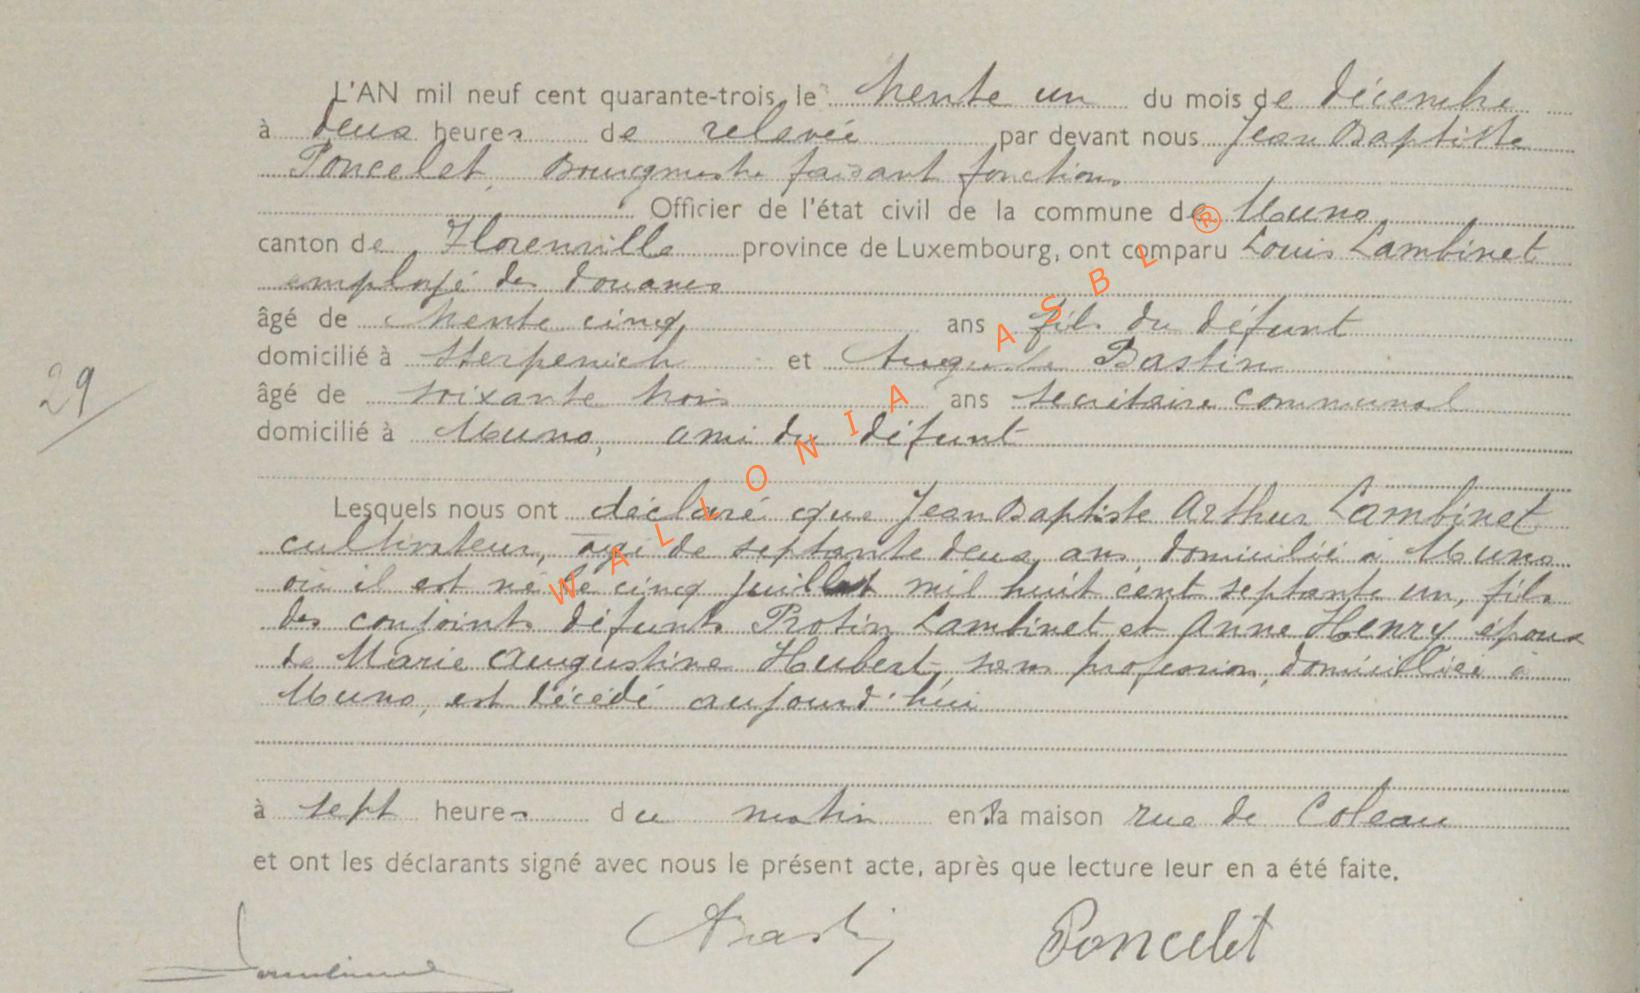 L'AN mil neuf cent quarante-trois, le trente un du mois de décembre
à deux heures de relevée par devant nous Jean Baptiste
Poncelet, Bourgmestre faisant fonctions
Officier de l'état civil de la commune de Muno
canton de Florenville province de Luxembourg, ont comparu Louis Lambinet
employé des douanes
âgé de trente cinq ans fils du défunt
domicilié à Sterpenich et Auguste Bastin
29
âgé de soixante trois ans secrétaire communal
domicilié à Muno, ami du défunt
Lesquels nous ont déclaré que Jean Baptiste Arthur Lambinet
cultivateur, âgé de septante deux ans, domicilié à Muno
où il est né le cinq juillet mil huit cent septante un, fils
des conjoints défunts Protin Lambinet et Anne Henry époux
de Marie Augustine Hubert, sans profession, domiciliée à
Muno, est décédé aujourd'hui
à sept heures du matin en sa maison rue de Coleau
et ont les déclarants signé avec nous le présent acte, après que lecture leur en a été faite.
ABastin Poncelet
Lambinet
WALLONIA ASBL ®